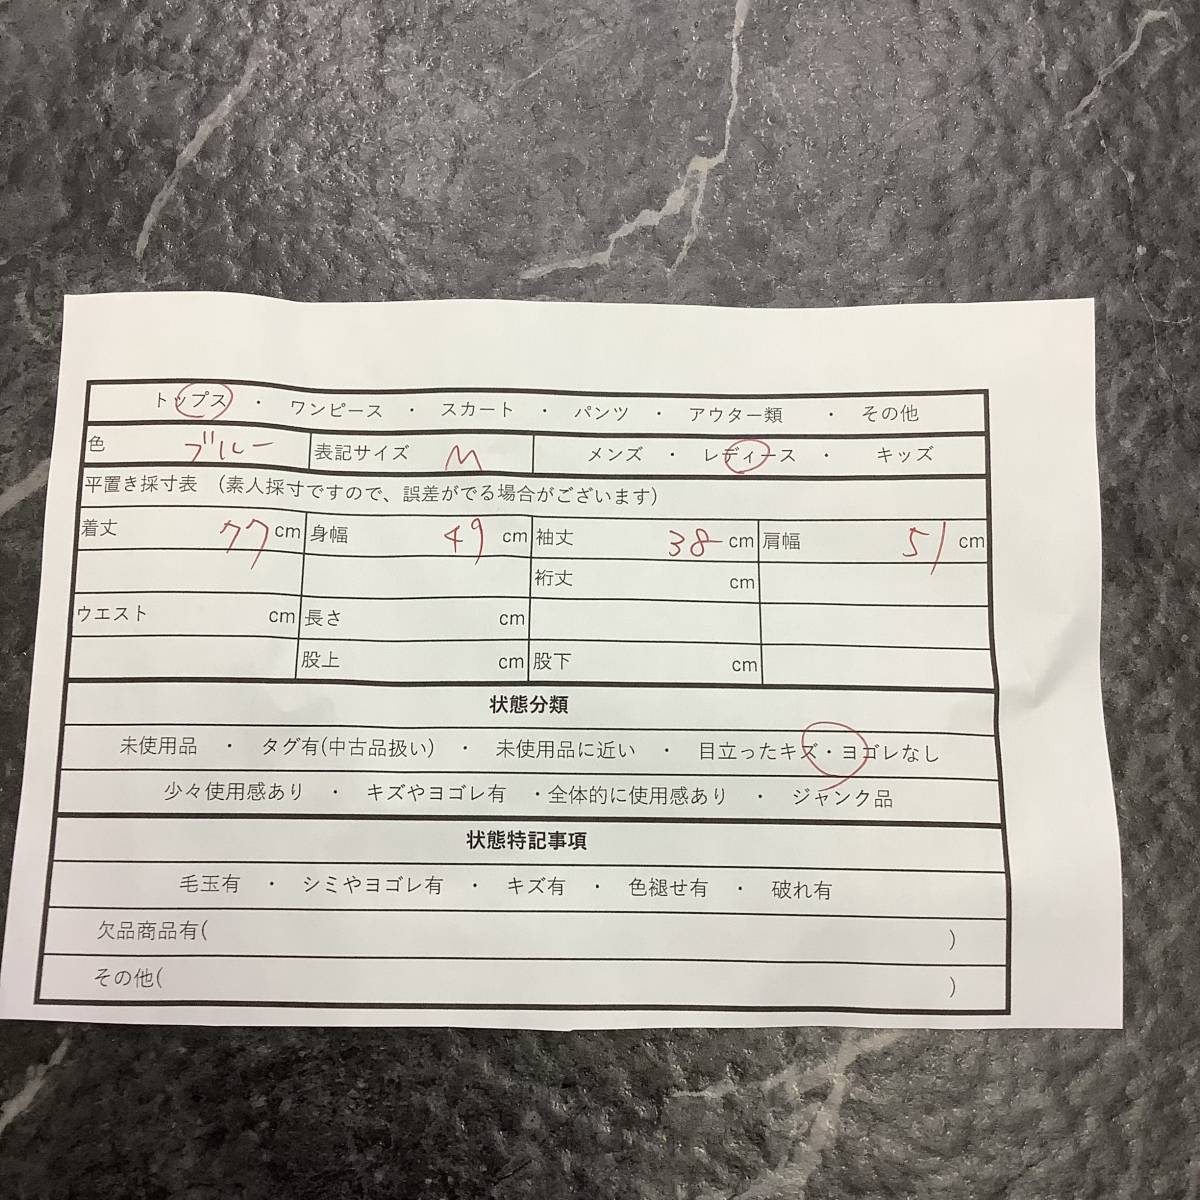 トップス ・ ワンピース ・ スカート ・ パンツ ・ アウター類 ・ その他
色 ブルー 表記サイズ M メンズ ・ レディース ・ キッズ
平置き採寸表 (素人採寸ですので、誤差がでる場合がございます)
着丈 77 cm 身幅 49 cm 袖丈 38 cm 肩幅 51 cm
裄丈 cm
ウエスト cm 長さ cm
股上 cm 股下 cm
状態分類
未使用品 ・ タグ有(中古品扱い) ・ 未使用品に近い ・ 目立ったキズ・ヨゴレなし
少々使用感あり ・ キズやヨゴレ有 ・全体的に使用感あり ・ ジャンク品
状態特記事項
毛玉有 ・ シミやヨゴレ有 ・ キズ有 ・ 色褪せ有 ・ 破れ有
欠品商品有( )
その他( )